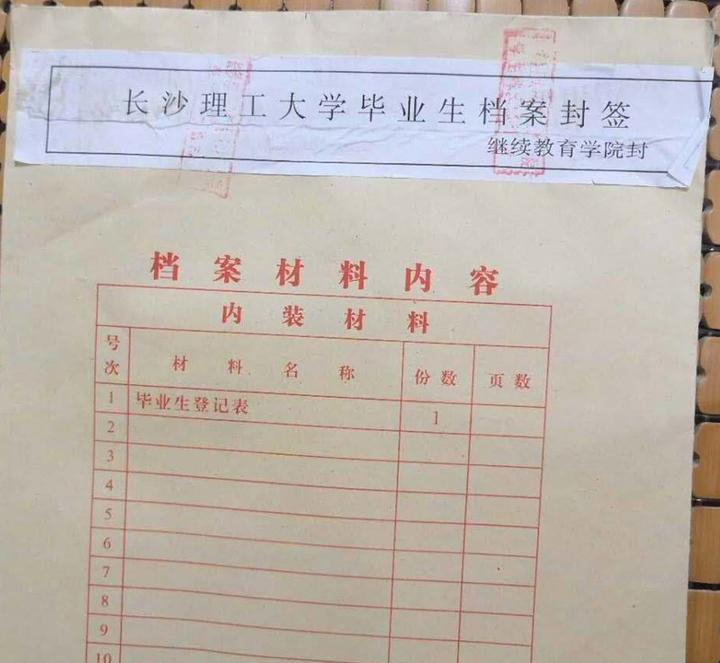 长沙理工大学毕业生档案封签
继续教育学院封
档案材料内容
内装材料
号次 材料名称 份数 页数
1 毕业生登记表 1
2
3
4
5
6
7
8
9
10